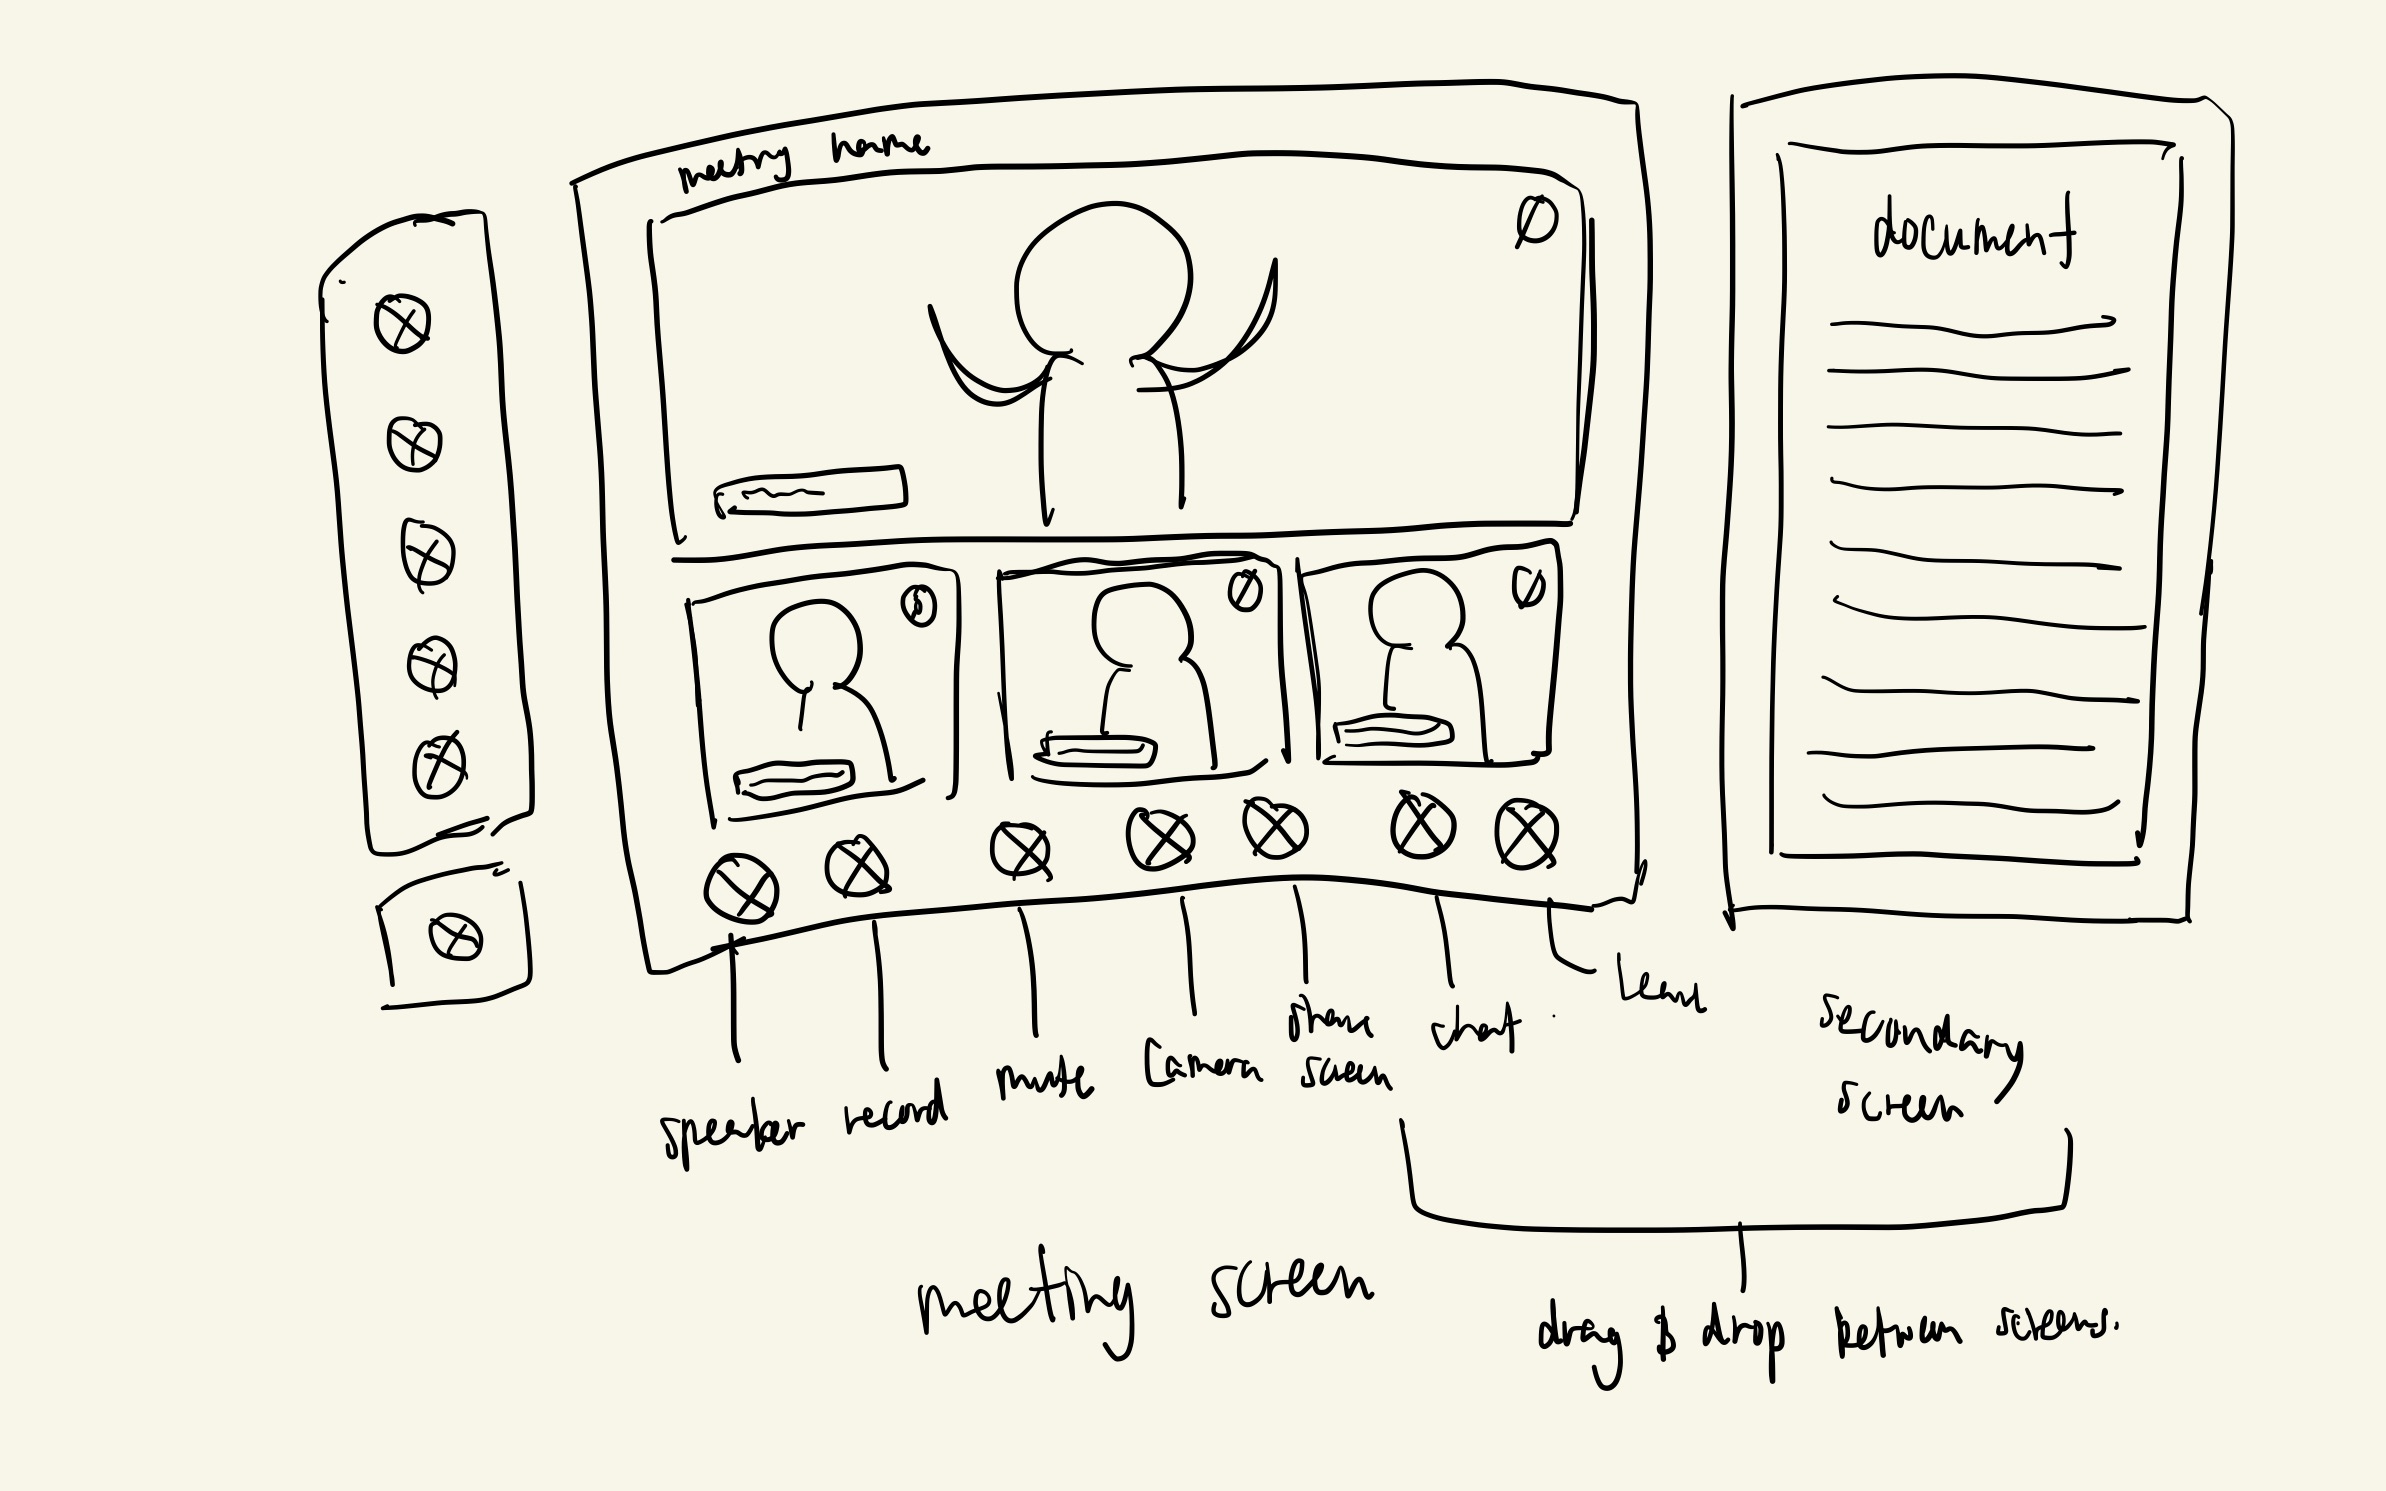 meeting home
document
speaker
record
mute
camera
share
screen
chat
secondary
screen
meeting screen
drag & drop between screens.